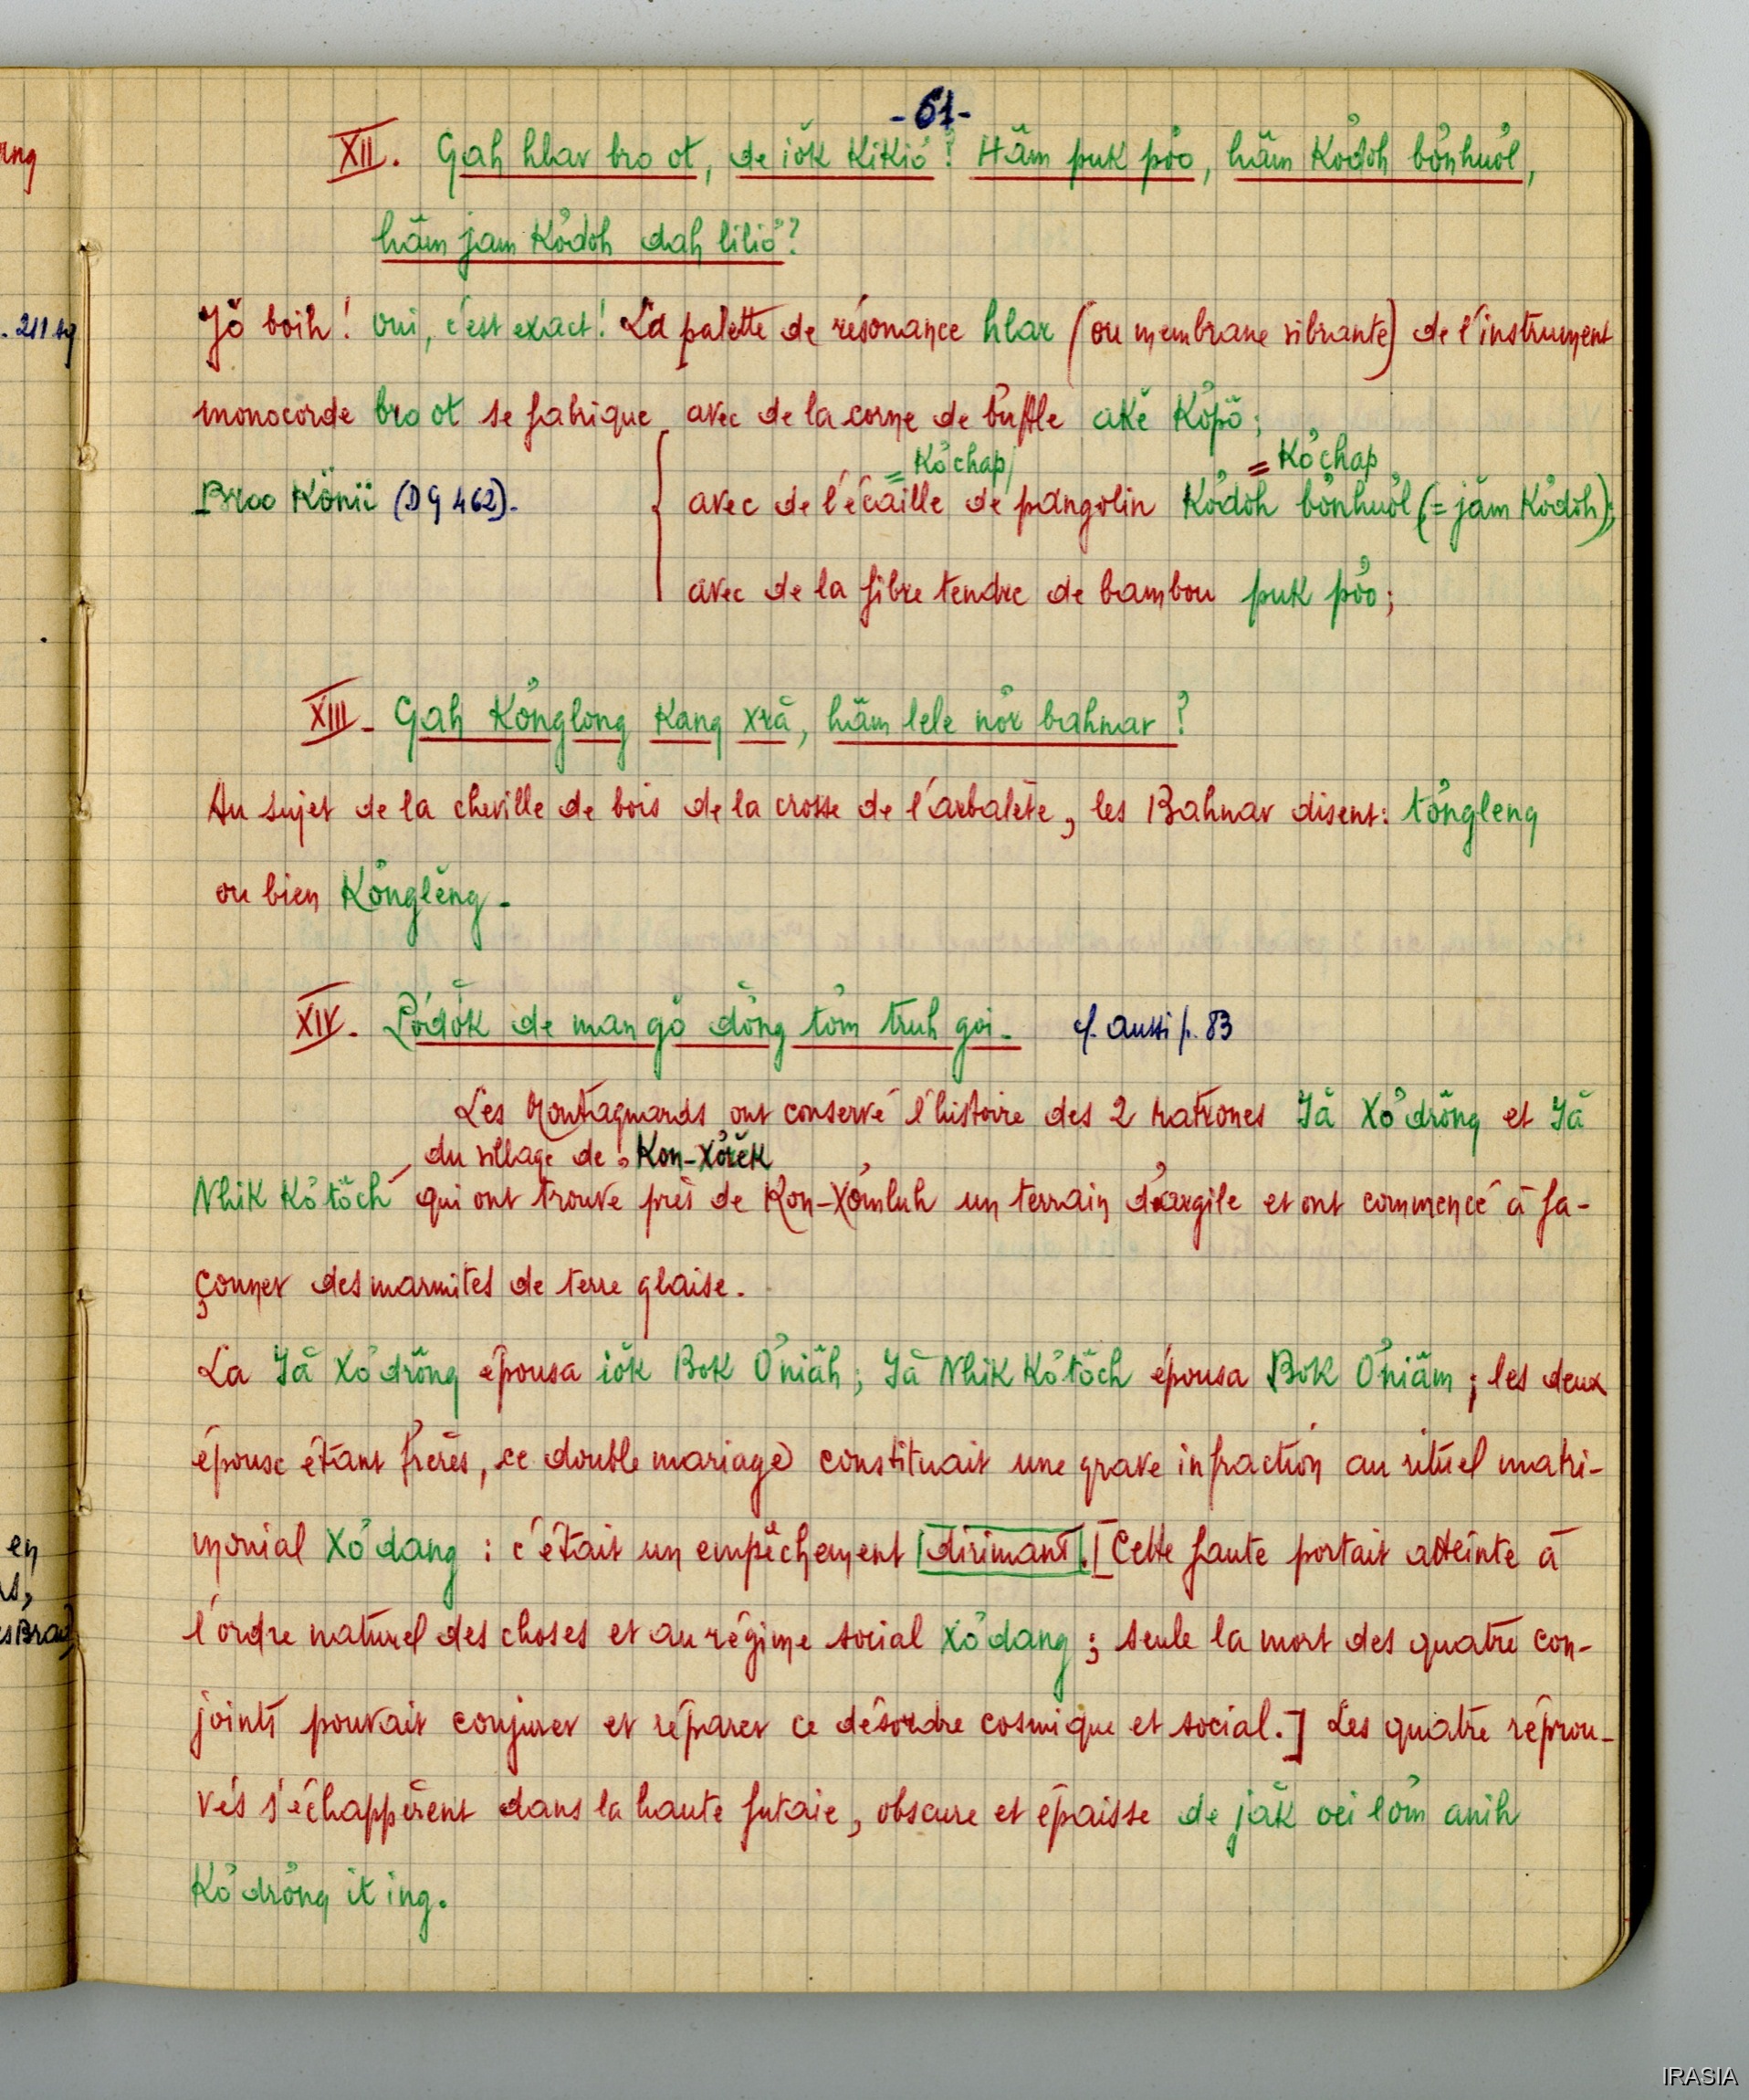 -61-
XII. Gah hlar bro ot, de iŏk kikiơ̆? Hăm puk pơ̆o, hăm kơ̆dŏh bơ̆nhuơ̆l,
hăm jam kơ̆dŏh dah liliơ̆?
Jô̆ boih! oui, c'est exact! La palette de résonance hlar (ou membrane vibrante) de l'instrument
monocorde bro ot se fabrique avec de la corne de buffle akĕ kơ̆pô;
= kơ̆chap = kơ̆chap
Broo Kơ̆nii (DG 462). avec de l'écaille de pangolin kơ̆dŏh bơ̆nhuơ̆l (= jăm kơ̆dŏh);
avec de la fibre tendre de bambou puk pơ̆o;
XIII - Gah kơ̆nglong kang xră, hăm lele nơ̆r bahnar?
Au sujet de la cheville de bois de la crosse de l'arbalète, les Bahnar disent: tơ̆ngleng
ou bien kơ̆nglĕng -
XIV - Pơ̆dŏk de man gŏ dơ̆ng tơ̆m truh goi - cf. aussi p. 83
Les Montagnards ont conservé l'histoire des 2 matrones Yă Xơ̆drŏng et Yă
du village de Kon-Xơ̆rĕk
Nhik Kơ̆tŏch qui ont trouvé près de Kon-Xơ̆mluh un terrain d'argile et ont commencé à fa-
çonner des marmites de terre glaise.
La Yă Xơ̆drŏng épousa iŏk Bok Ơ̆niăh; Yă Nhik Kơ̆tŏch épousa Bok Ơ̆niăm; les deux
épouse étant frères, ce double mariage constituait une grave infraction au rituel matri-
monial Xơ̆dang : c'était un empêchement dirimant. [Cette faute portait atteinte à
l'ordre naturel des choses et au régime social Xơ̆dang ; seule la mort des quatre con-
joints pouvait conjurer et réparer ce désordre cosmique et social.] Les quatre réprou-
vés s'échappèrent dans la haute futaie, obscure et épaisse de jăk oei lơ̆m anih
kơ̆drơ̆ng it ing.
rng
. 211 sq
en
s,
sBrao)
IRASIA